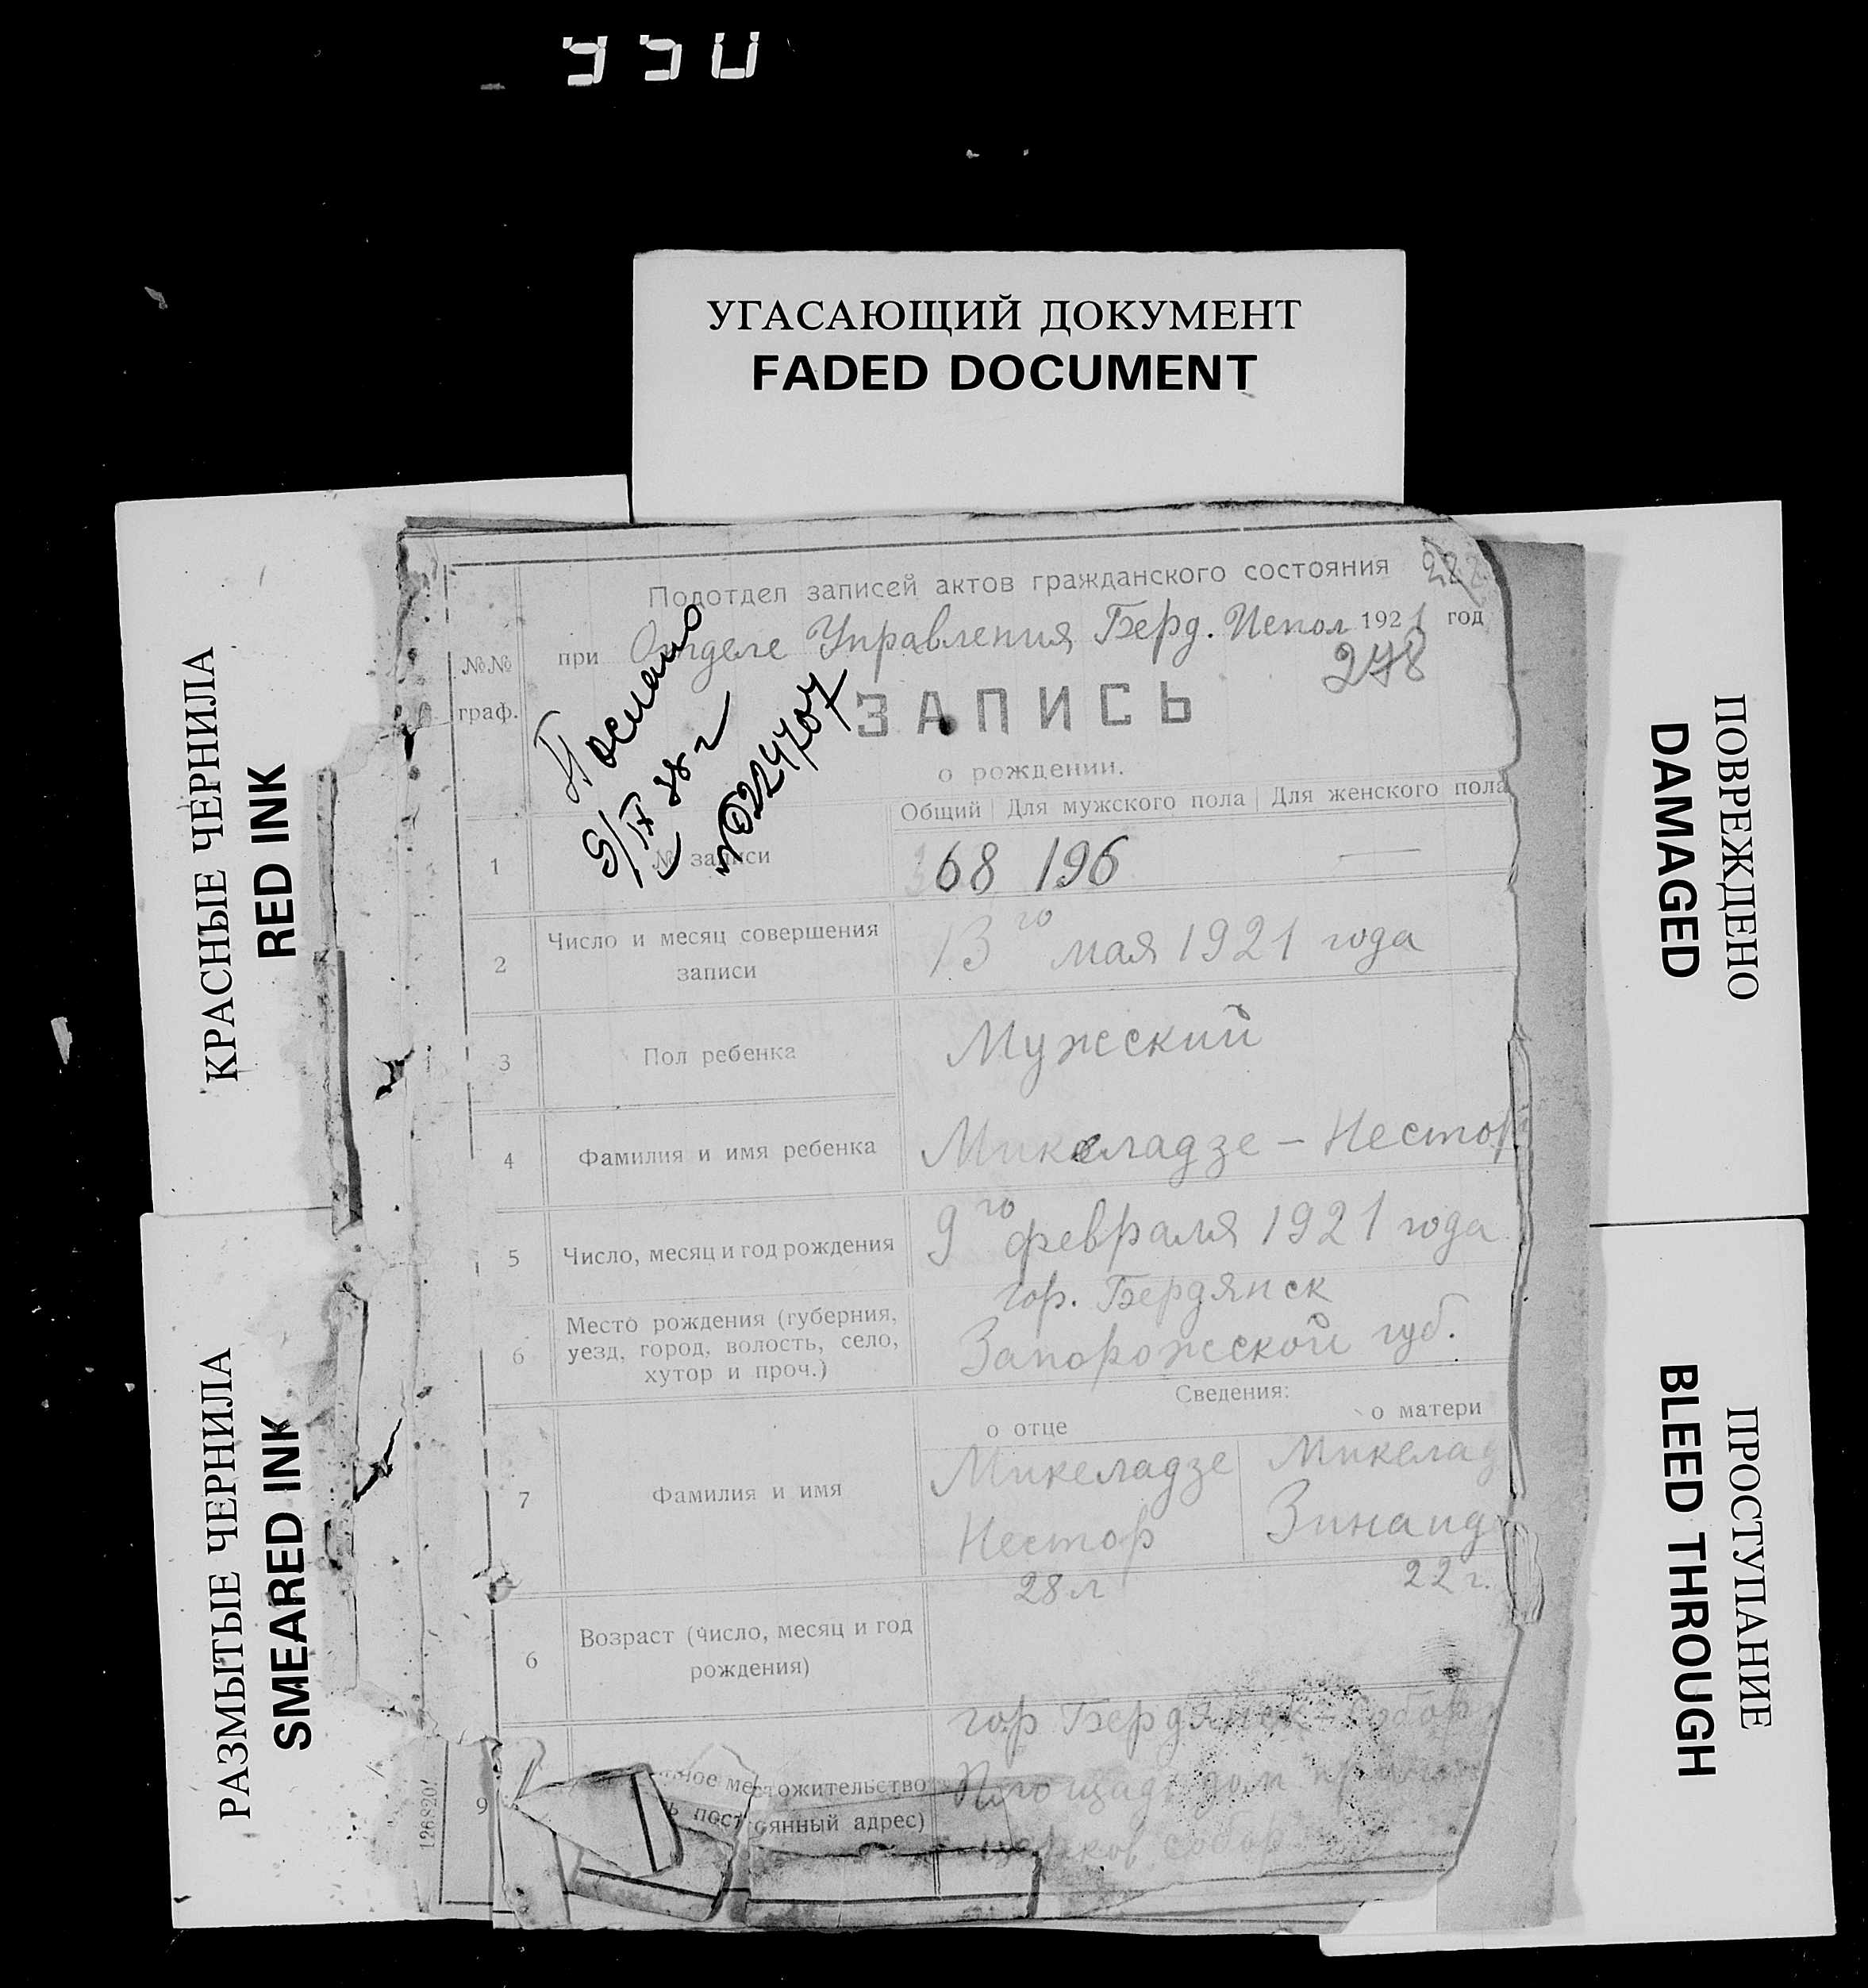 950
УГАСАЮЩИЙ ДОКУМЕНТ
FADED DOCUMENT
КРАСНЫЕ ЧЕРНИЛА
RED INK
РАЗМЫТЫЕ ЧЕРНИЛА
SMEARED INK
ПОВРЕЖДЕНО
DAMAGED
ПРОСТУПАНИЕ
BLEED THROUGH
Подотдел записей актов гражданского состояния
при Отделе Управления Берд. Испол 1921 год
278
№№
граф.
ЗАПИСЬ
о рождении.
Послано
Общий Для мужского пола Для женского пола
1 № записи 368 196 —
2 Число и месяц совершения
записи
13го мая 1921 года
3 Пол ребенка Мужский
4 Фамилия и имя ребенка Микеладзе – Нестор
5 Число, месяц и год рождения 9го февраля 1921 года
6 Место рождения (губерния,
уезд, город, волость, село,
хутор и проч.)
гор. Бердянск
Запорожской губ.
Сведения:
о отце о матери
7 Фамилия и имя
Микеладзе Микелад
Нестор Зинаид
28 л 22 г.
6 Возраст (число, месяц и год
рождения)
гор Бердянск Собор
9
ное местожительство
ь постоянный адрес)
Площадь дом
собор
126820